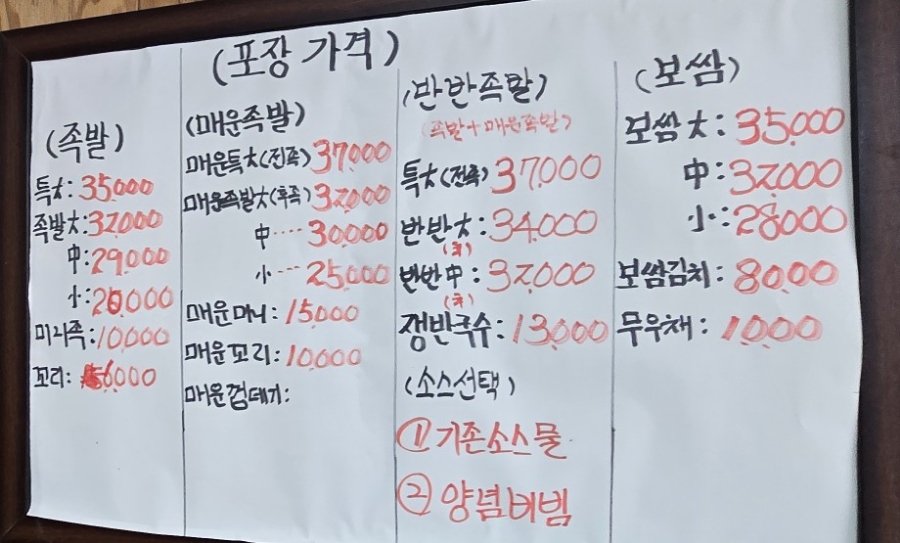 (포장 가격)
(족발)
특大: 35,000
족발大: 32,000
中: 29,000
小: 20,000
미니족: 10,000
꼬리: 6,000
(매운족발)
매운특大(진족) 37,000
매운족발大(후족) 32,000
中···· 30,000
小··· 25,000
매운미니: 15,000
매운꼬리: 10,000
매운껍데기:
(반반족발)
(족발+매운족발)
특大(전족) 37,000
반반大: 34,000
(후)
반반中: 32,000
(후)
쟁반국수: 13,000
(소스선택)
① 기존소스물
② 양념비빔
(보쌈)
보쌈大: 35,000
中: 32,000
小: 28,000
보쌈김치: 8,000
무우채: 1,000